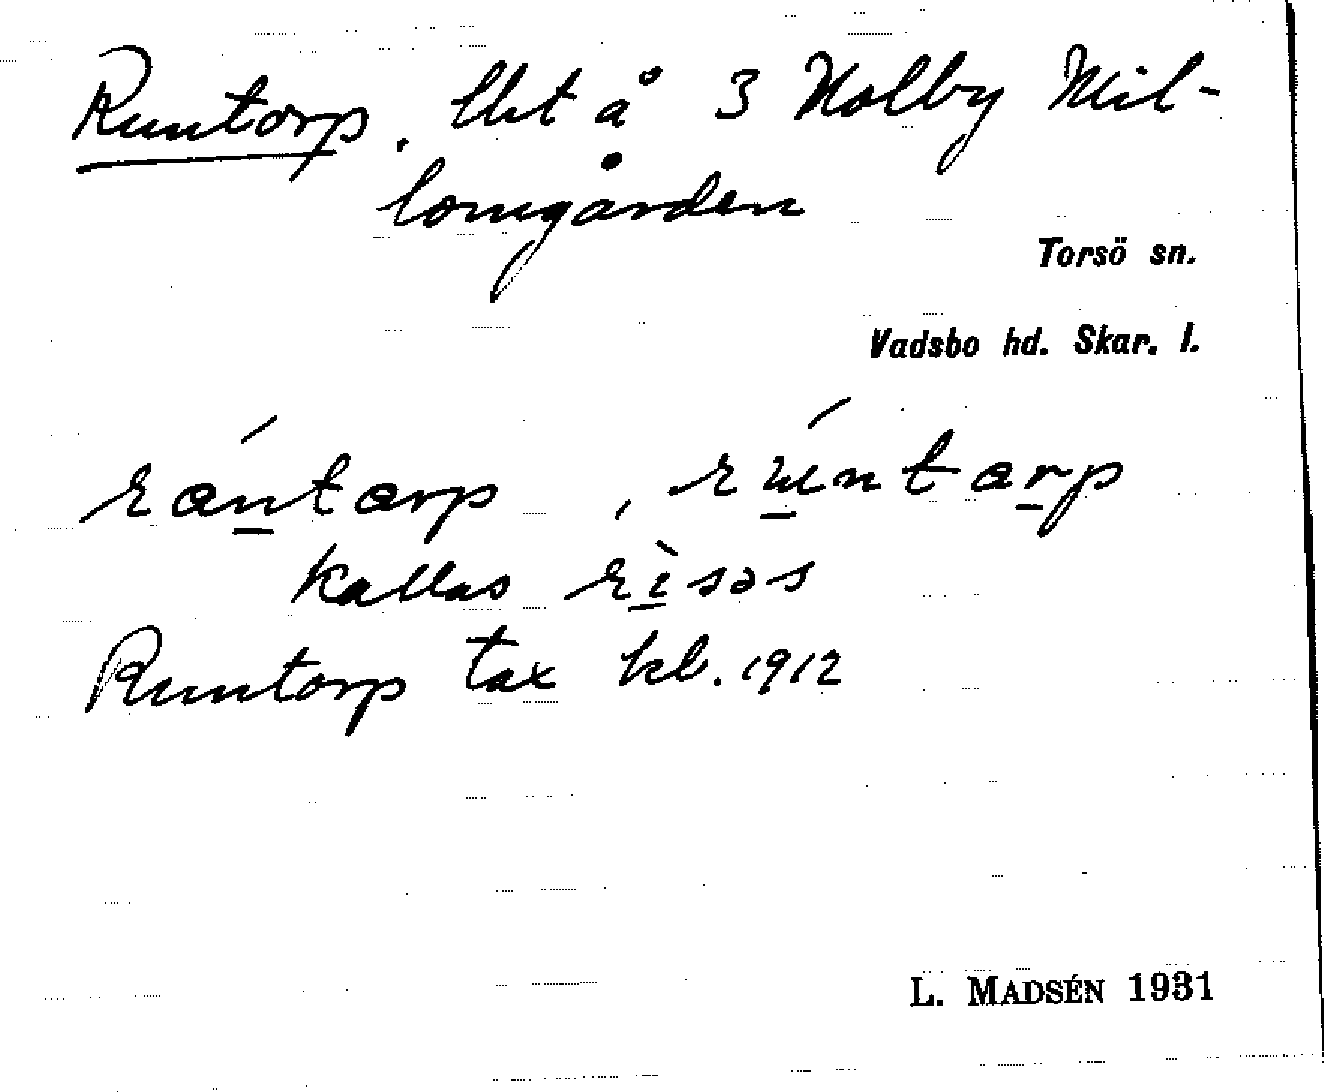 Runtorp. lht å 3 Nolby Mil-
lomgården
Torsö sn.
Vadsbo hd. Skar. l.
rántarp, rúntarp
kallas rìsəs
Runtorp tax kl. 1912
L. MADSÉN 1931